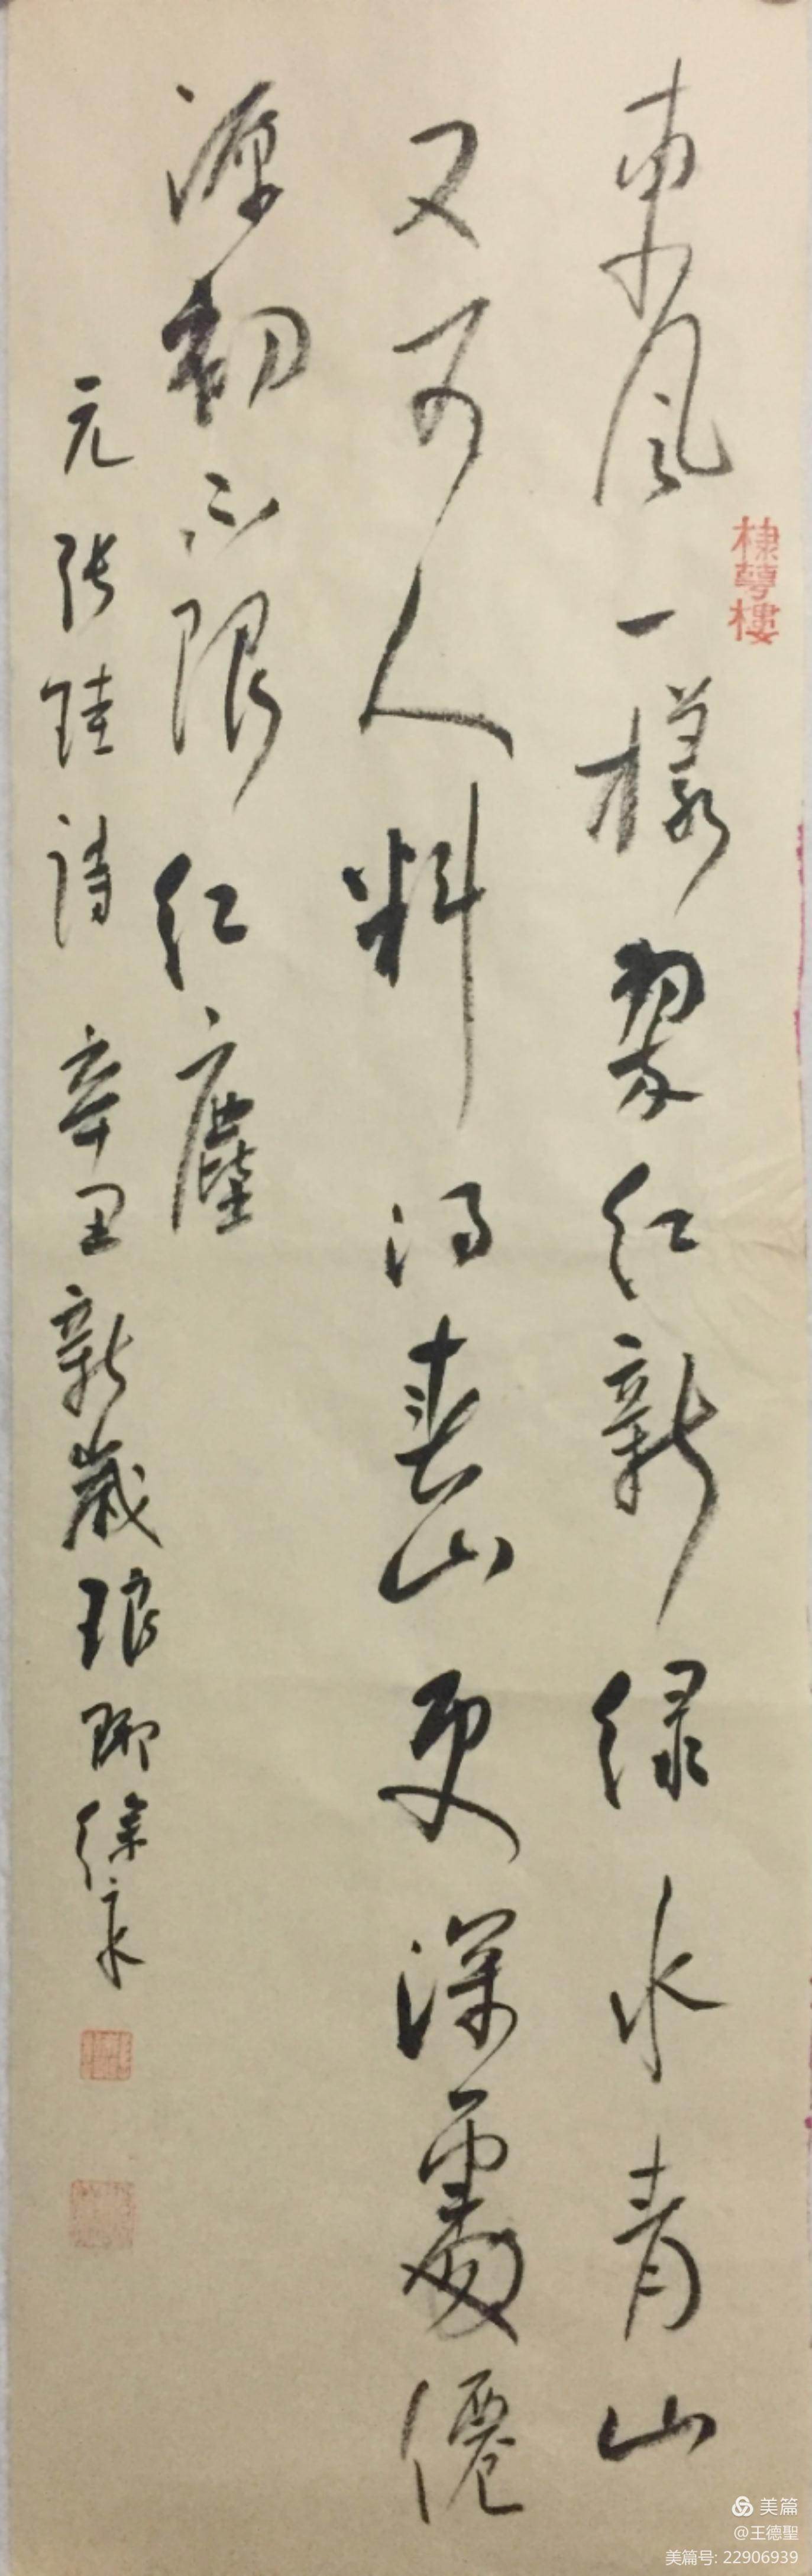 東風一樣翠红新绿水青山
又可人料得春山更深處僊
源初不限红塵
元张珪诗 辛丑新歲琅琊徐永
棣萼樓
美篇
@王德聖
美篇号: 22906939